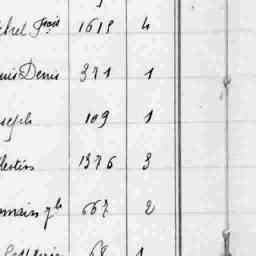 chel Fçois 1615 4
ouis Denis 371 1
seph 109 1
lestin 1376 3
main 667 2